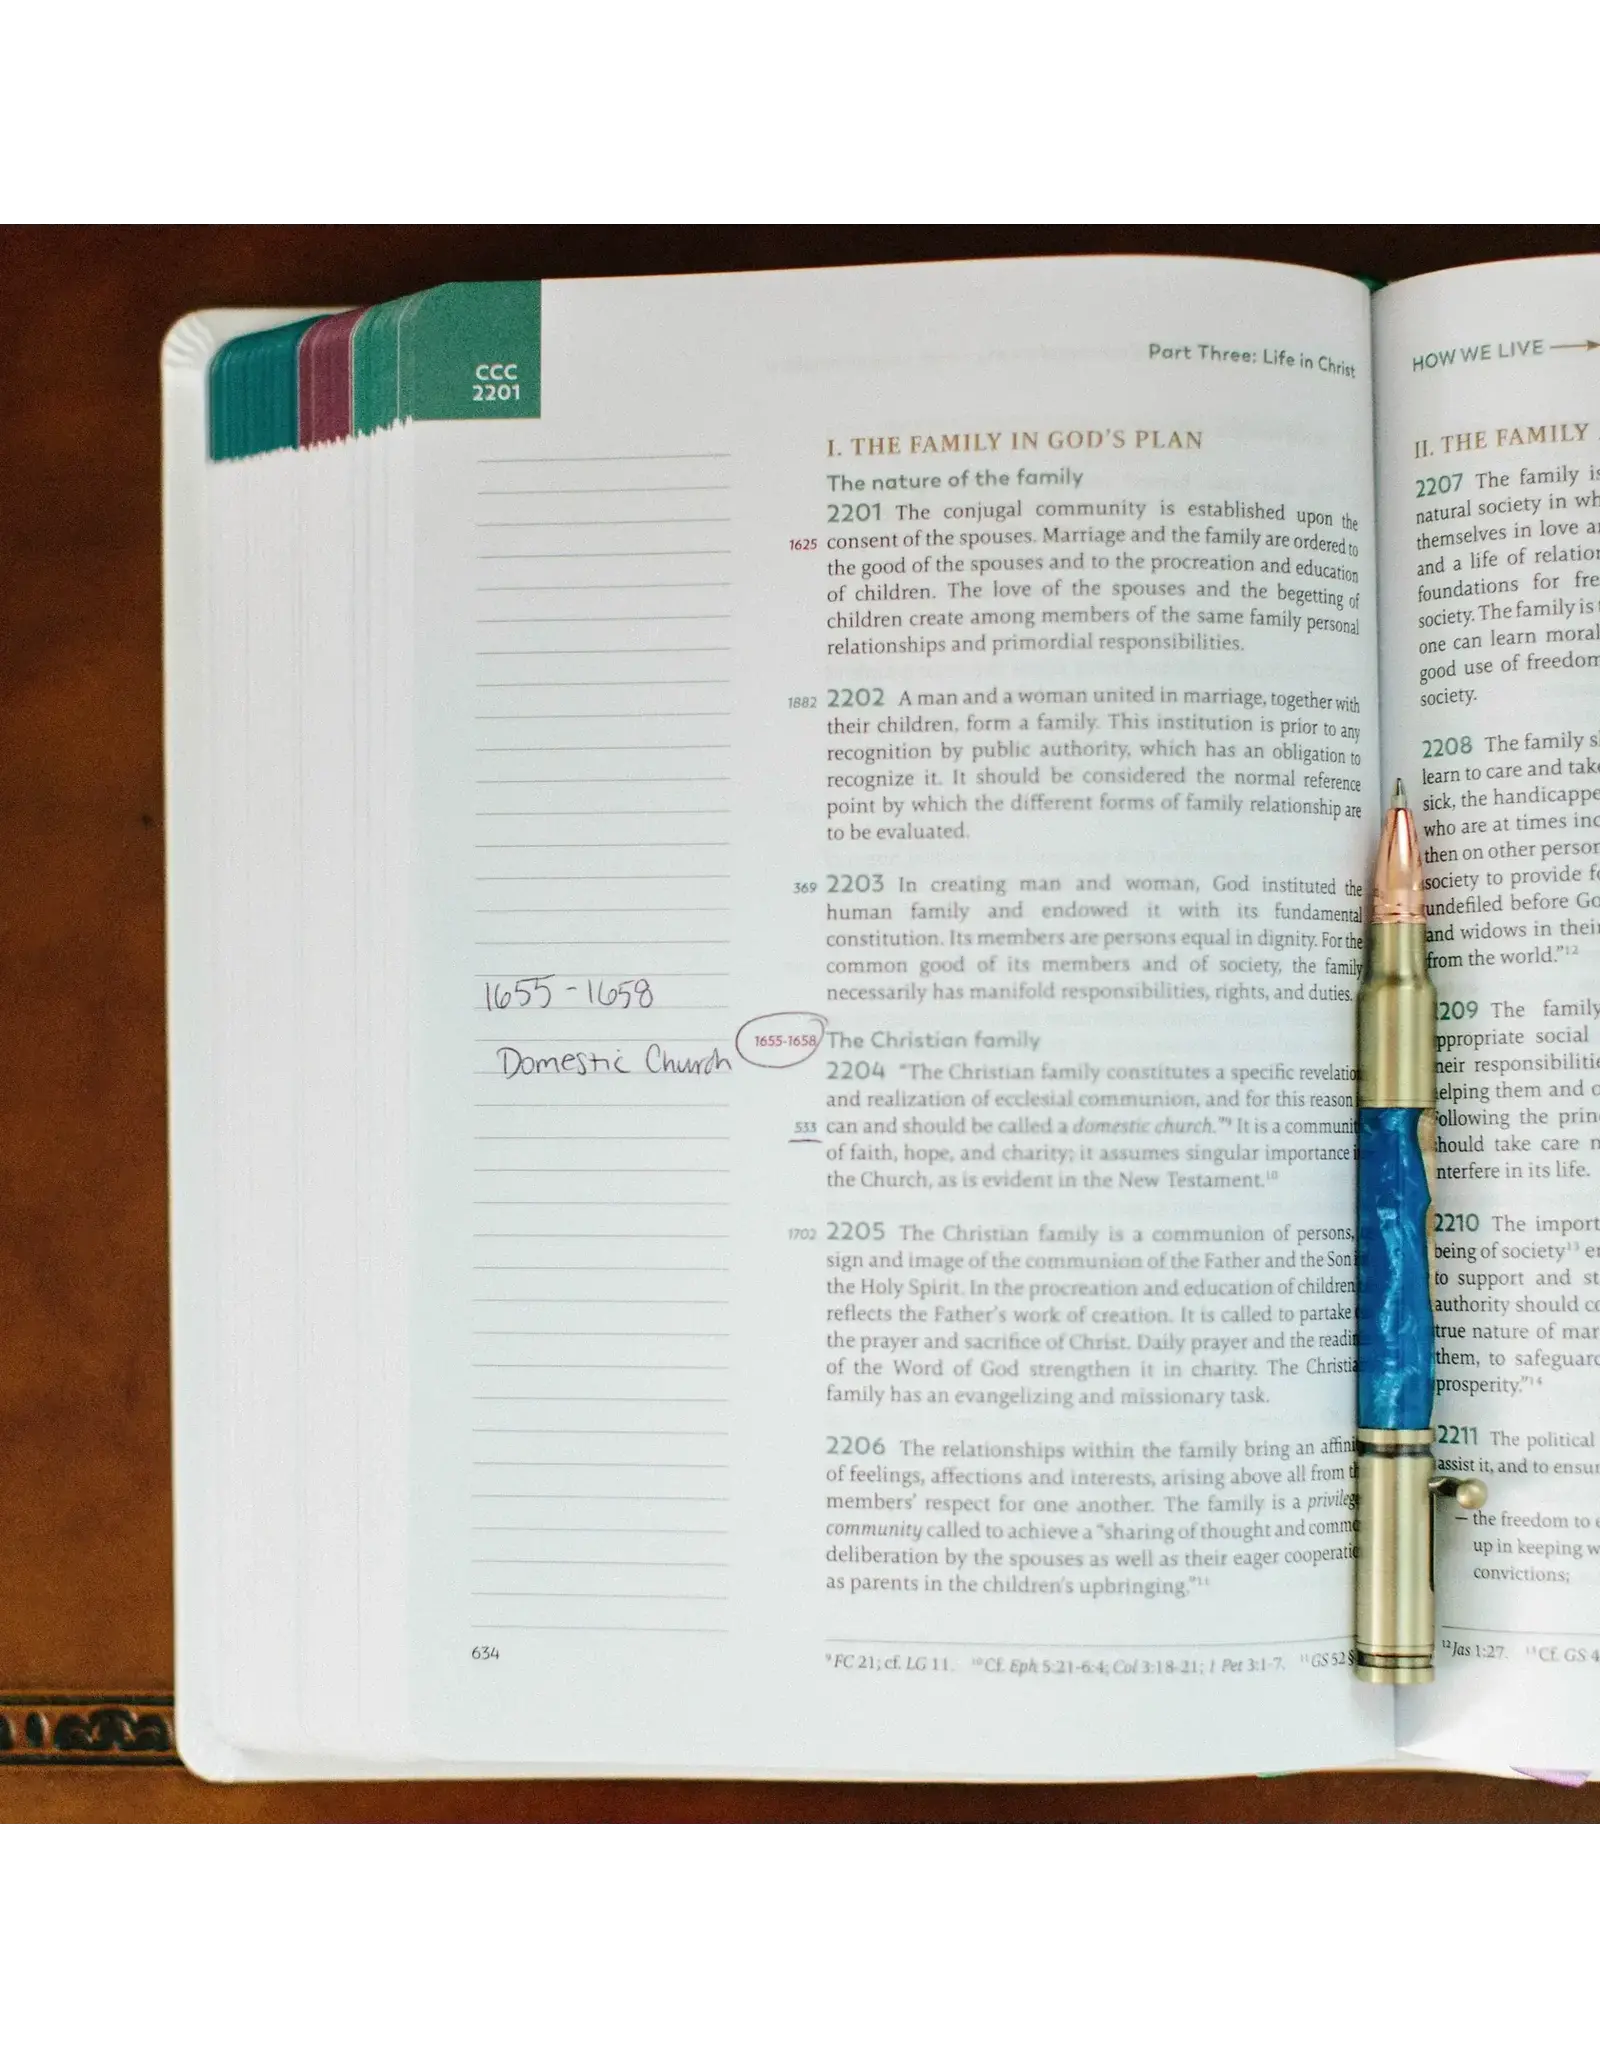 CCC
2201
Part Three: Life in Christ
I. THE FAMILY IN GOD'S PLAN
The nature of the family
2201 The conjugal community is established upon the
1625 consent of the spouses. Marriage and the family are ordered to
the good of the spouses and to the procreation and education
of children. The love of the spouses and the begetting of
children create among members of the same family personal
relationships and primordial responsibilities.
1882 2202 A man and a woman united in marriage, together with
their children, form a family. This institution is prior to any
recognition by public authority, which has an obligation to
recognize it. It should be considered the normal reference
point by which the different forms of family relationship are
to be evaluated.
369 2203 In creating man and woman, God instituted the
human family and endowed it with its fundamental
constitution. Its members are persons equal in dignity. For the
common good of its members and of society, the family
necessarily has manifold responsibilities, rights, and duties.
1655-1658
Domestic Church
1655-1658 The Christian family
2204 "The Christian family constitutes a specific
and realization of ecclesial communion, and for this reason
533 can and should be called a domestic church."9 It is a
of faith, hope, and charity; it assumes singular importance
the Church, as is evident in the New Testament.10
1702 2205 The Christian family is a communion of persons,
sign and image of the communion of the Father and the Son
the Holy Spirit. In the procreation and education of children
reflects the Father's work of creation. It is called to partake
the prayer and sacrifice of Christ. Daily prayer and the
of the Word of God strengthen it in charity. The
family has an evangelizing and missionary task.
2206 The relationships within the family bring an
of feelings, affections and interests, arising above all from
members' respect for one another. The family is a
community called to achieve a "sharing of thought and
deliberation by the spouses as well as their eager
as parents in the children's upbringing."11
634
9 FC 21; cf. LG 11. 10 Cf. Eph 5:21-6:4; Col 3:18-21; 1 Pet 3:1-7. 11 GS 52 §
HOW WE LIVE
II. THE FAMILY
2207 The family is
natural society in
themselves in love
and a life of
foundations for
society. The family is
one can learn moral
good use of freedom
society.
2208 The family
learn to care and take
sick, the
who are at times
then on other
society to provide
undefiled before
and widows in their
from the world."12
2209 The family
appropriate social
their responsibilities
helping them and
following the
should take care
interfere in its life.
2210 The
being of society13
to support and
authority should
true nature of
them, to
prosperity."14
2211 The political
assist it, and to
– the freedom to
up in keeping
convictions;
12 Jas 1:27. 13 Cf. GS